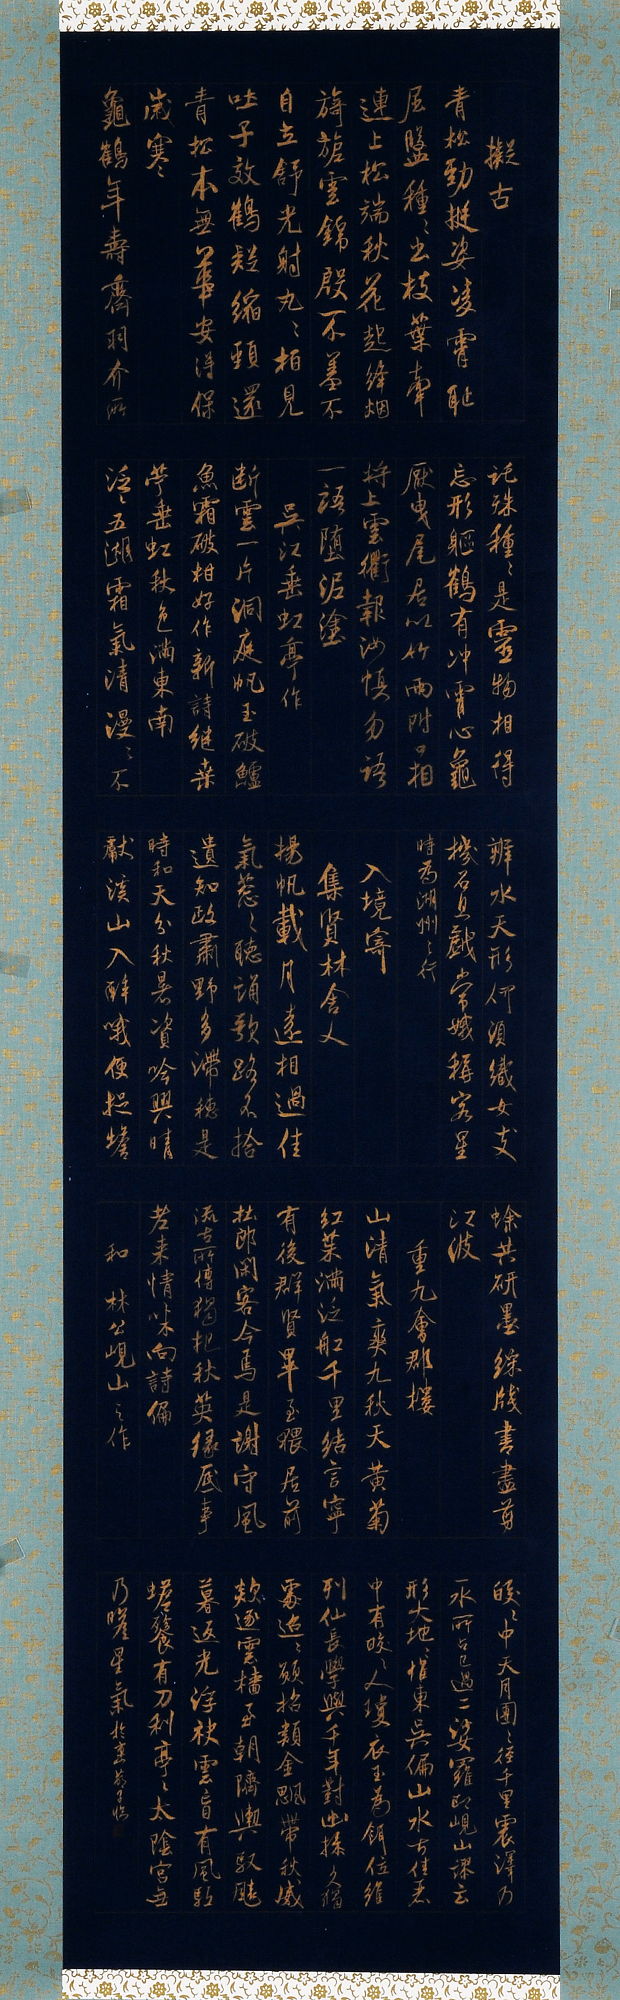 擬古
青松勁挺姿凌霄耻
屈盤種々出枝葉牽
連上松端秋花起絳烟
旖旎雲錦殷不羞不
自立舒光射丸々柏見
吐子效鶴疑縮頸還
青松本無華安得保
歲寒
龜鶴年壽齊羽介所
託殊種々是靈物相得
忘形軀鶴有冲霄心龜
厭曳尾居以竹兩附口相
將上雲衢報汝慎勿語
一語墮泥塗
吳江垂虹亭作
斷雲一片洞庭帆玉破鱸
魚霜破柑好作新詩繼桑
苧垂虹秋色滿東南
泛々五湖霜氣清漫々不
辨水天形何須織女支
機石且戲常娥稱客星
時為湖州之行
入境寄
集賢林舍人
揚帆載月遠相過佳
氣葱々聽誦歌路不拾
遺知政肅野多滯穗是
時和天分秋暑資吟興晴
獻溪山入醉哦便捉蟾
蜍共研墨綵牋書盡剪
江波
重九會郡樓
山清氣爽九秋天黃菊
紅茱滿泛船千里結言寧
有後群賢畢至猥居前
杜郎閑客今焉是謝守風
流古所傳獨把秋英緣底事
老来情味向詩偏
和林公峴山之作
皎々中天月團々徑千里震澤乃
一水所占已過二娑羅即峴山謬云
形大地惟東吳偏山水古佳麗
中有皎々人瓊衣玉為餌位維
列仙長學與千年對幽操久獨
處迢々願招類金飈帶秋威
欻逐雲檣至朝隮輿馭飈
暮返光浮袂雲盲有風馭
蟾餮有刀利亭々太陰宮無
乃瞻星氣